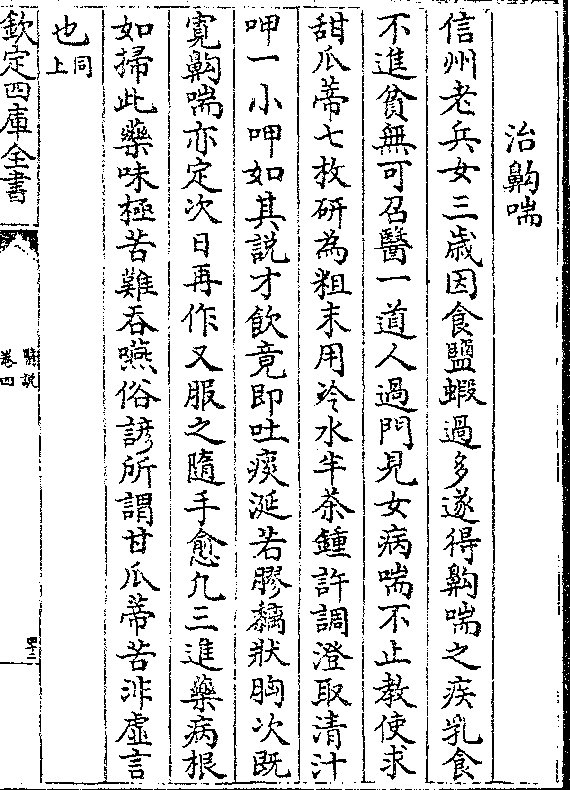 治齁喘
信州老兵女三歲因食鹽蝦過多遂得齁喘之疾乳食
不進貧無可召醫一道人過門見女病喘不止教使求
甜瓜蒂七枚研為粗末用冷水半茶鍾許調澄取清汁
呷一小呷如其説才飲竟即吐痰涎若膠黐狀胸次既
寛齁喘亦定次日再作又服之隨手愈凡三進藥病根
如掃此藥味極苦難吞嚥俗諺所謂甘瓜蒂苦非虛言
也同上
欽定四庫全書
醫説
卷四
四十二